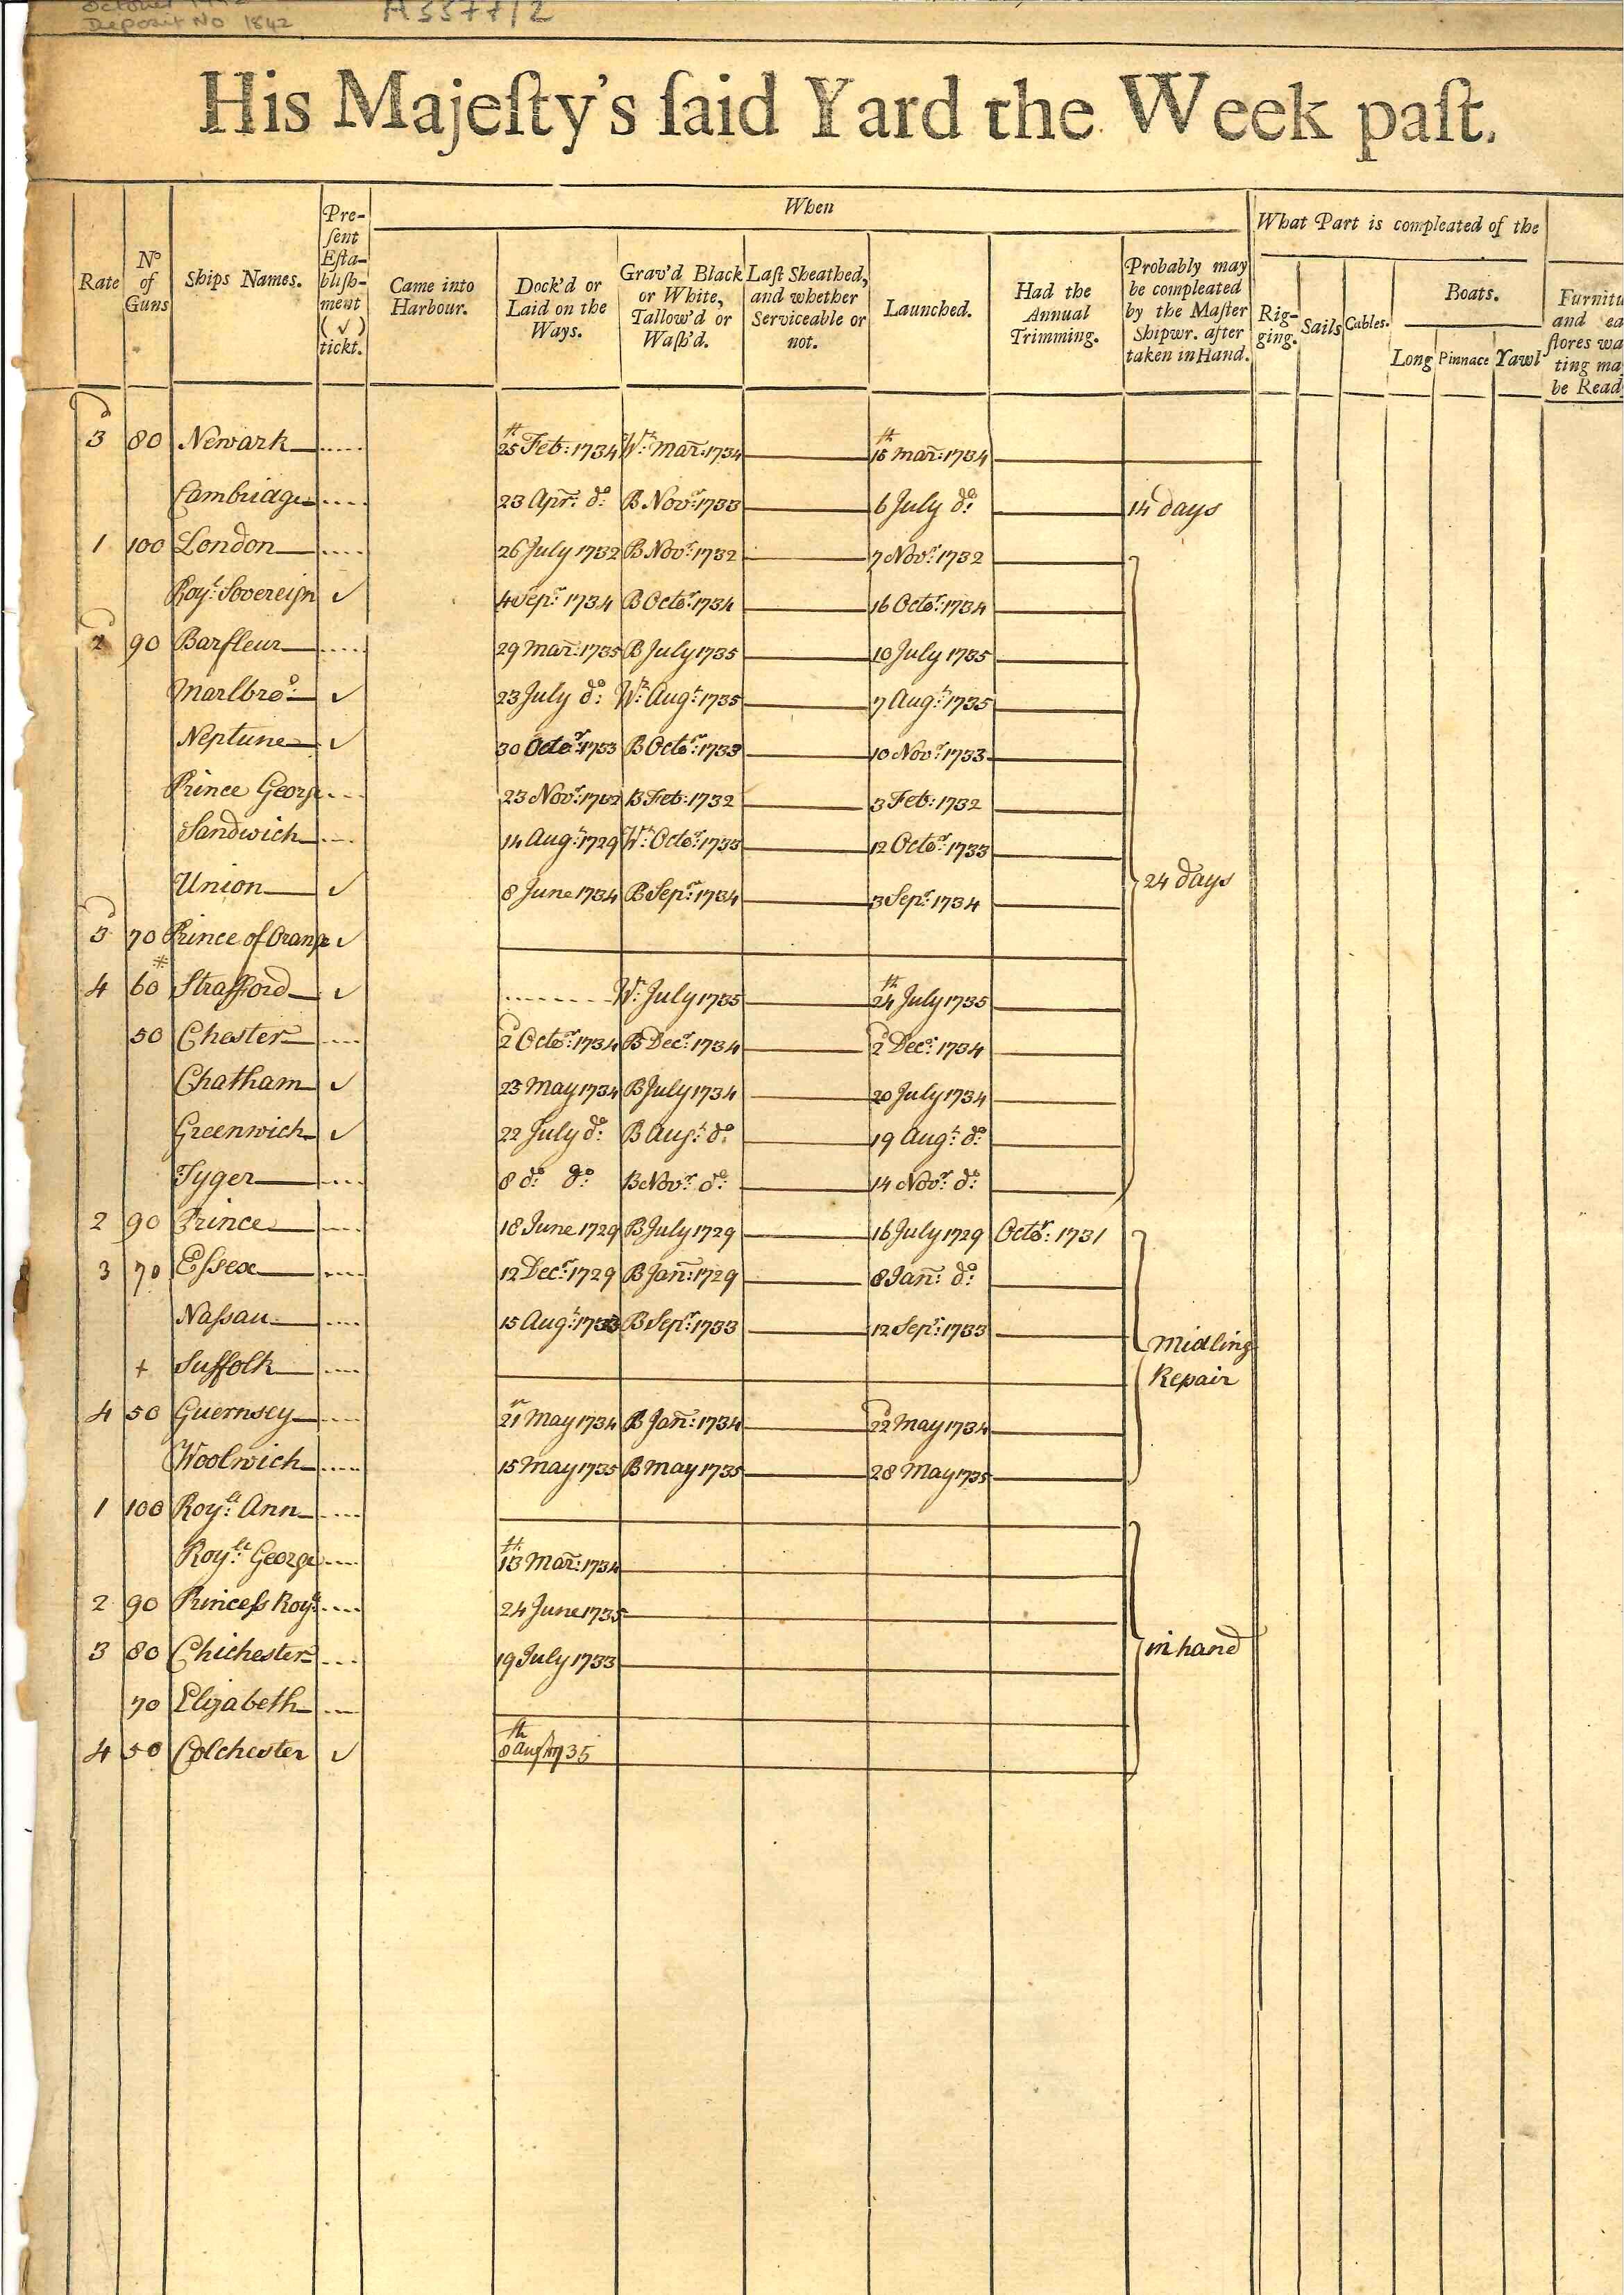 October 1942
Deposit No 1842
A3377/2
His Majeſty's ſaid Yard the Week paſt.
Rate
No of Guns
Ships Names.
Pre-ſent Eſta-bliſh-ment (✓) tickt.
When
Came into Harbour.
Dock'd or Laid on the Ways.
Grav'd Black or White, Tallow'd or Waſh'd.
Laſt Sheathed, and whether Serviceable or not.
Launched.
Had the Annual Trimming.
Probably may be compleated by the Maſter Shipwr. after taken in Hand.
What Part is compleated of the
Rig-ging.
Sails
Cables.
Boats.
Long
Pinnace
Yawl
Furnitu
and ea
ſtores wa
ting ma
be Read
3 80 Newark 25th Feb: 1734 Wt: Mar: 1734 15th Mar: 1734
Cambridge 23 Apr: do: B Novr: 1733 6 July do: 14 days
1 100 London 26 July 1732 B Novr: 1732 7 Novr: 1732
Royl: Sovereign ✓ 4 Sepr: 1734 B Octor: 1734 16 Octor: 1734
2 90 Barfleur 29 Mar: 1735 B July 1735 10 July 1735
Marlbro: ✓ 23 July do: Wt: Augt: 1735 7 Augt: 1735
Neptune ✓ 30 Octor: 1733 B Octor: 1733 10 Novr: 1733
Prince George 23 Novr: 1732 B Feb: 1732 3 Feb: 1732
Sandwich 14 Augt: 1729 Wt: Octor: 1733 12 Octor: 1733
Union ✓ 8 June 1734 B Sepr: 1734 3 Sepr: 1734 24 days
3 70 Prince of Orange ✓
4 60 * Strafford ✓ Wt: July 1735 24th July 1735
50 Chester 2d Octor: 1734 B Decr: 1734 2d Decr: 1734
Chatham ✓ 23 May 1734 B July 1734 20 July 1734
Greenwich ✓ 22 July do: B Augt: do: 19 Augt: do:
Tyger 8 do: do: B Novr: do: 14 Novr: do:
2 90 Prince 18 June 1729 B July 1729 16 July 1729 Octor: 1731
3 70 Eſsex 12 Decr: 1729 B Jan: 1729 8 Jan: do:
Naſsau 15 Augt: 1733 B Sepr: 1733 12 Sepr: 1733 Midling
+ Suffolk Repair
4 50 Guernsey 21 May 1734 B Jan: 1734 22d May 1734
Woolwich 15 May 1735 B May 1735 28 May 1735
1 100 Royll: Ann
Royll: George 13th Mar: 1734
2 90 Princeſs Royl: 24 June 1735
3 80 Chichester 19 July 1733 in hand
70 Elizabeth
4 50 Colchester ✓ 8th Augt 1735